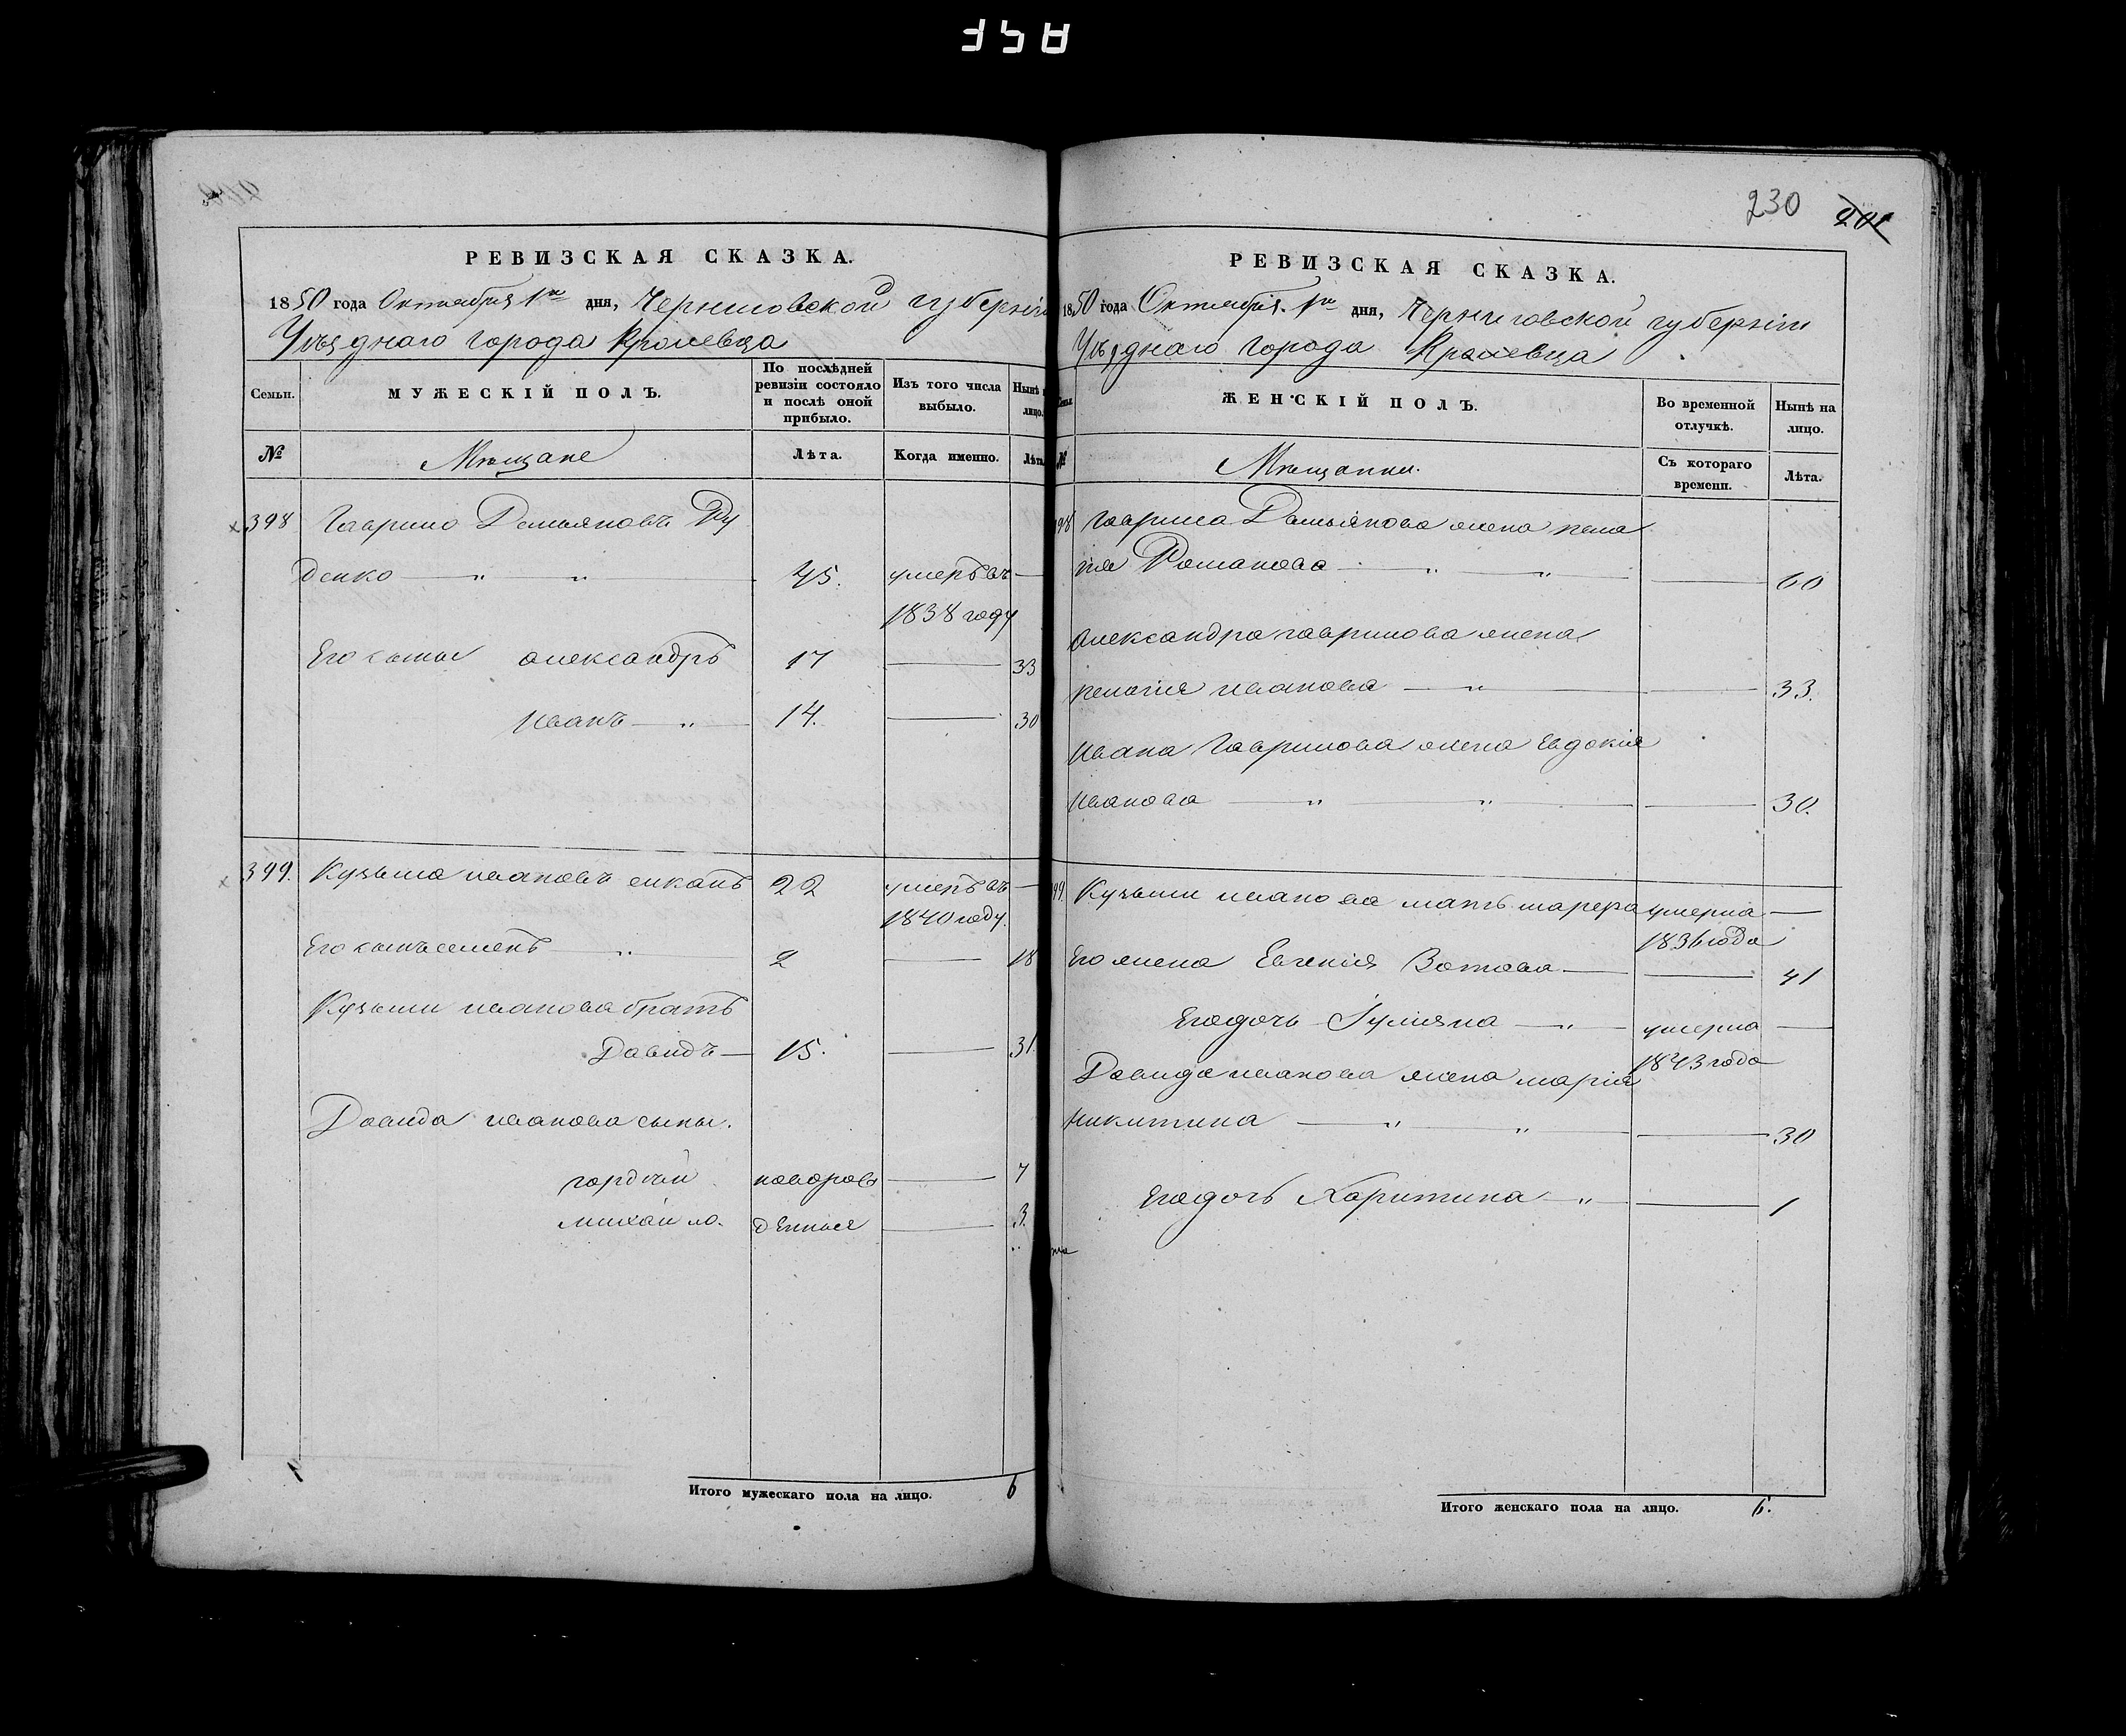 РЕВИЗСКАЯ СКАЗКА.
1850 года Октября 1го дня, Черниговской губерніи
Уѣзднаго города Кролевца
Семьи.
МУЖЕСКІЙ ПОЛЪ.
По послѣдней ревизіи состояло и послѣ оной прибыло.
Изъ того числа выбыло.
Нынѣ лицо.
№
Мѣщане
Лѣта.
Когда именно.
Лѣта
398 Гаврило Демьяновъ Ру
денко 45. умеръ въ
1838 году
Его сыны Александръ 17 33
Иванъ 14. 30
399. Кузьма Ивановъ 22 умеръ въ
1840 году.
Его сынъ Семенъ 2 18
Кузьмы Иванова братъ
Давидъ 15. 31
Давида Иванова сыны.
Гордѣй новорож 7
Михайло. денные 3.
Итого мужескаго пола на лицо. 6
230
201
РЕВИЗСКАЯ СКАЗКА.
1850 года Октября 1го дня, Черниговской губерніи
Уѣзднаго города Кролевца
ЖЕНСКІЙ ПОЛЪ.
Во временной отлучкѣ.
Нынѣ на лицо.
№
Мѣщанки.
Съ котораго времени.
Лѣта.
98 Гаврила Демьянова жена Пела
гія Романова 60
Александра Гаврилова жена
Пелагія Иванова 33.
Ивана Гаврилова жена Евдокія
Иванова 30.
99. Кузьмы Иванова мать умерла
1836 года
Его жена Евгенія 41
Его дочь Іуліяна умерла
1843 года
Давида Иванова жена Марія
Никитина 30
Его дочь Харитина 1
Итого женскаго пола на лицо. 6.